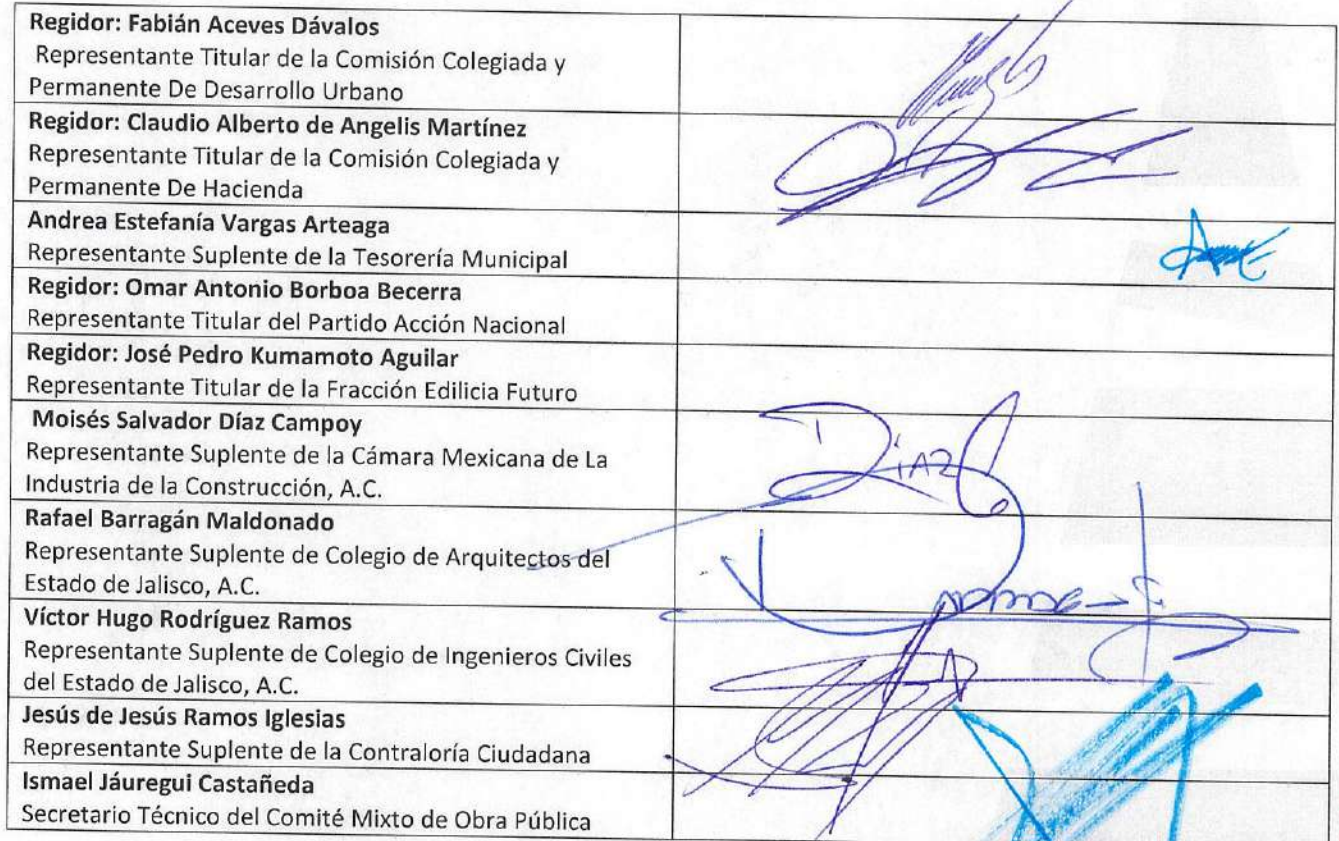 Regidor: Fabián Aceves Dávalos
Representante Titular de la Comisión Colegiada y
Permanente De Desarrollo Urbano
Regidor: Claudio Alberto de Angelis Martínez
Representante Titular de la Comisión Colegiada y
Permanente De Hacienda
Andrea Estefanía Vargas Arteaga
Representante Suplente de la Tesorería Municipal
Regidor: Omar Antonio Borboa Becerra
Representante Titular del Partido Acción Nacional
Regidor: José Pedro Kumamoto Aguilar
Representante Titular de la Fracción Edilicia Futuro
Moisés Salvador Díaz Campoy
Representante Suplente de la Cámara Mexicana de La
Industria de la Construcción, A.C.
DiAZ
Rafael Barragán Maldonado
Representante Suplente de Colegio de Arquitectos del
Estado de Jalisco, A.C.
Víctor Hugo Rodríguez Ramos
Representante Suplente de Colegio de Ingenieros Civiles
del Estado de Jalisco, A.C.
Jesús de Jesús Ramos Iglesias
Representante Suplente de la Contraloría Ciudadana
Ismael Jáuregui Castañeda
Secretario Técnico del Comité Mixto de Obra Pública